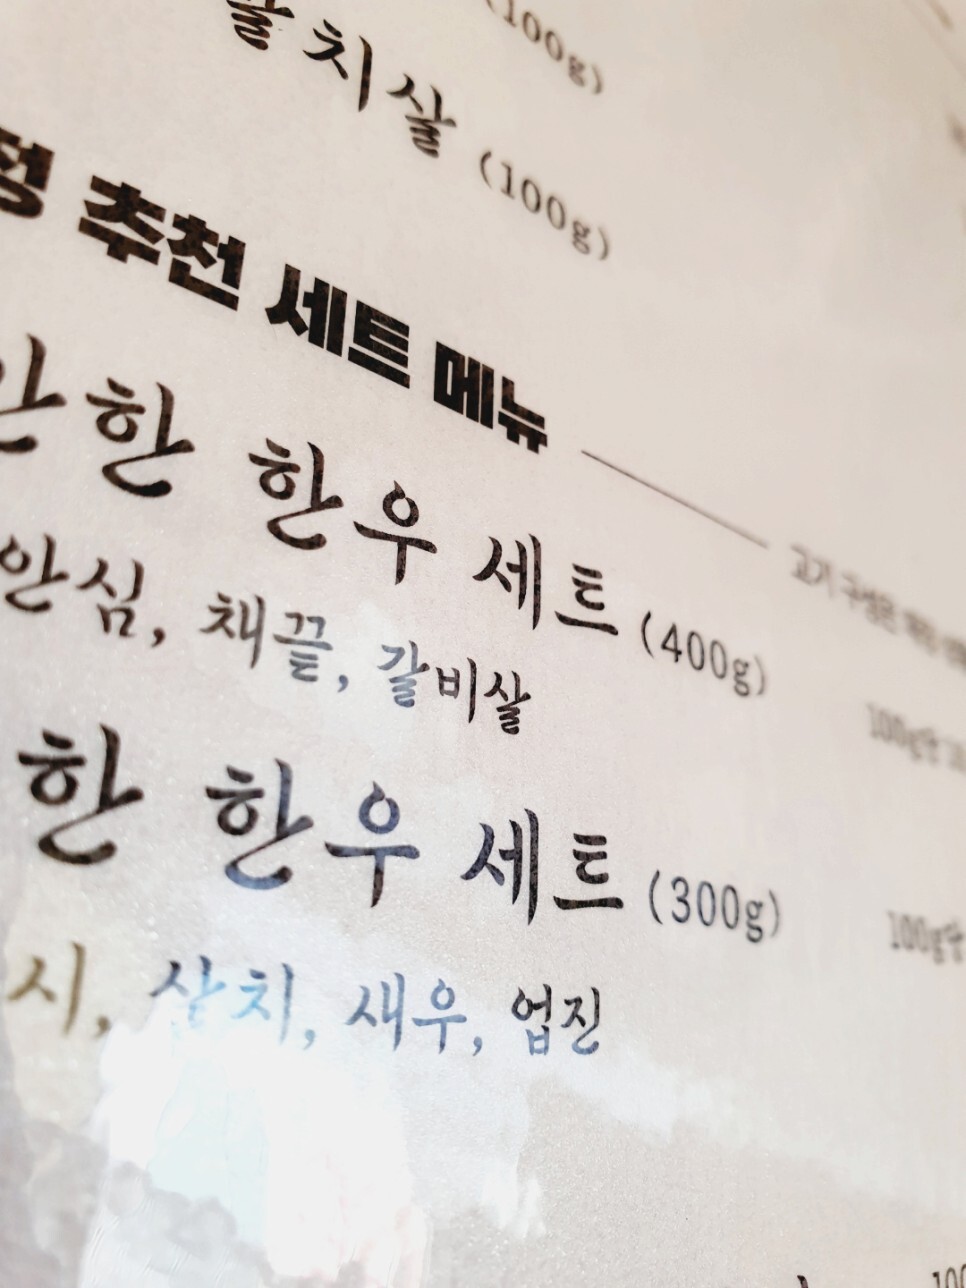 (100g)
살치살 (100g)
추천 세트 메뉴
한 한우 세트 (400g)
안심, 채끝, 갈비살
고기 구성은
100g당
한 한우 세트 (300g)
100g당
시, 살치, 새우, 업진